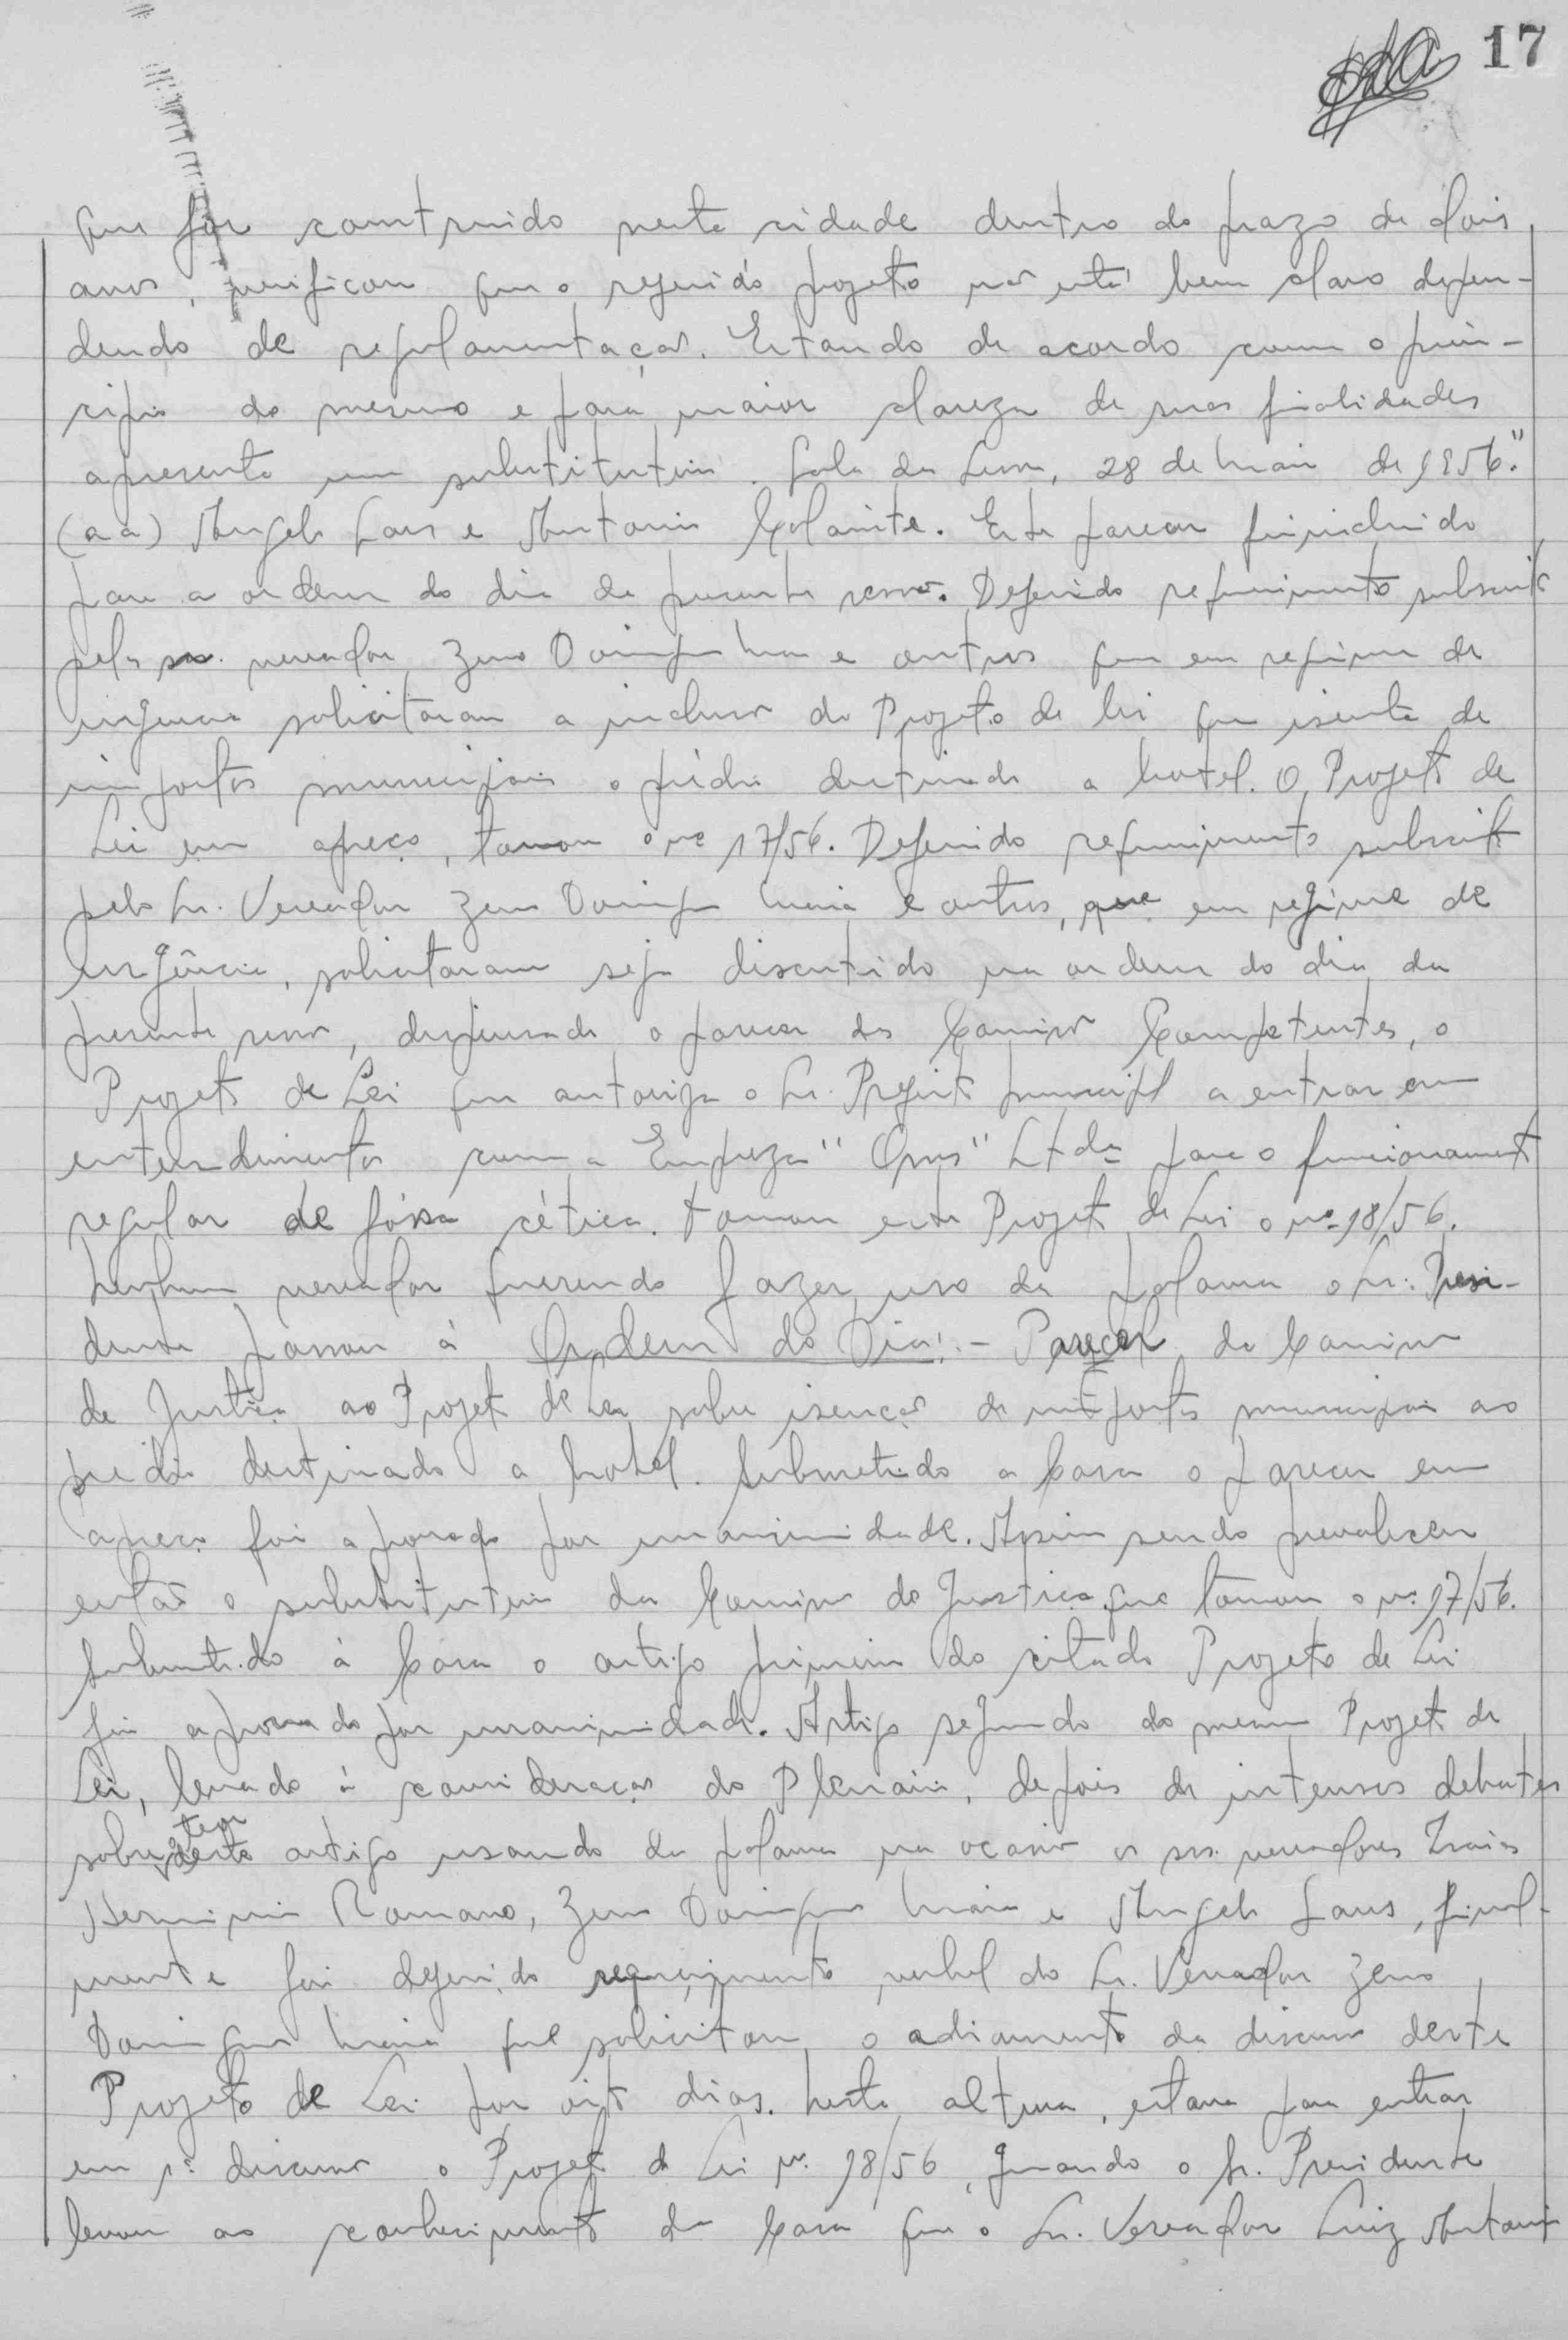 17
que for construido nesta cidade dentro do prazo de dois
anos, verificou que o referido projeto não está bem claro depen-
dendo de regulamentação. Estando de acordo com o prin-
cipio do mesmo e para maior clareza de suas finalidades
apresenta um substitutivo. Sala das Sessões, 28 de Maio de 1956."
(aa) Angelo Laus e Antonio Colarite. Este parecer foi incluido
para a ordem do dia da presente sessão. Deferido requerimento subscrito
pelo sr. vereador Zeno Domingues Maia e outros que em regime de
urgencia solicitaram a inclusão do Projeto de lei que isenta de
impostos municipais o prédio destinado a hotel. O Projeto de
Lei em apreço, tomou o nº 17/56. Deferido requerimento subscrito
pelo Sr. Vereador Zeno Domingues Maia e outros, que em regime de
urgência, solicitaram seja discutido na ordem do dia da
presente sessão, dispensado o parecer da Comissão Competentes, o
Projeto de Lei que autoriza o Sr. Prefeito Municipal a entrar em
entendimentos com a Empreza "Opus" Ltda para o funcionamento
regular de fóssa cética. Tomou este Projeto de Lei o nº 18/56.
Nenhum vereador querendo fazer uso da palavra o Sr. Presi-
dente passou à Ordem do Dia: - Parecer da Comissão
de Justiça ao Projeto de Lei sobre isenção de impostos municipais ao
predio destinado a hotel. Submetido a Casa o parecer em
apreço foi aprovado por unanimidade. Assim sendo prevaleceu
então o substitutivo da Comissão de Justiça que tomou o nº 17/56.
Submetido à Casa o artigo primeiro do citado Projeto de Lei
foi aprovado por unanimidade. Artigo segundo do mesmo Projeto de
Lei, levado à consideração do Plenário, depois de intensos debates
sobre o teor deste artigo usando da palavra na ocasião os srs. vereadores
Herminio Romano, Zeno Domingues Maia e Angelo Laus, final-
mente foi deferido requerimento verbal do Sr. Vereador Zeno
Domingues Maia que solicitou o adiamento da discussão deste
Projeto de Lei por oito dias. Nesta altura, estava para entrar
em 1ª discussão o Projeto de Lei nº 18/56, quando o Sr. Presidente
levou ao conhecimento da Casa que o Sr. Vereador Luiz Antonio